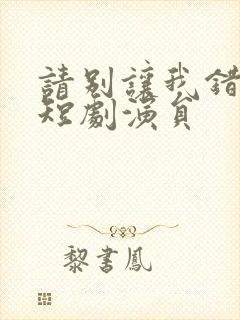 請別讓我錯
短劇演員
黎書鳳